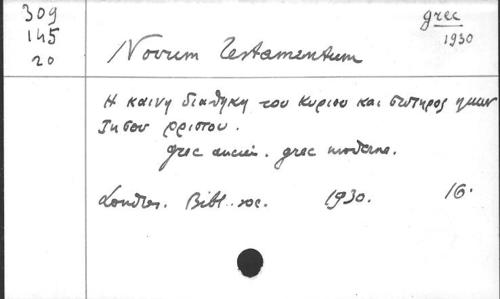 309
145
20
grec
1930
Novum Testamentum
Η καινη διαθηκη του Κυριου και σωτηρος ημων
Ιησου χριστου.
grec ancien. grec moderne.
Londres. Bibl. soc. 1930. 16.